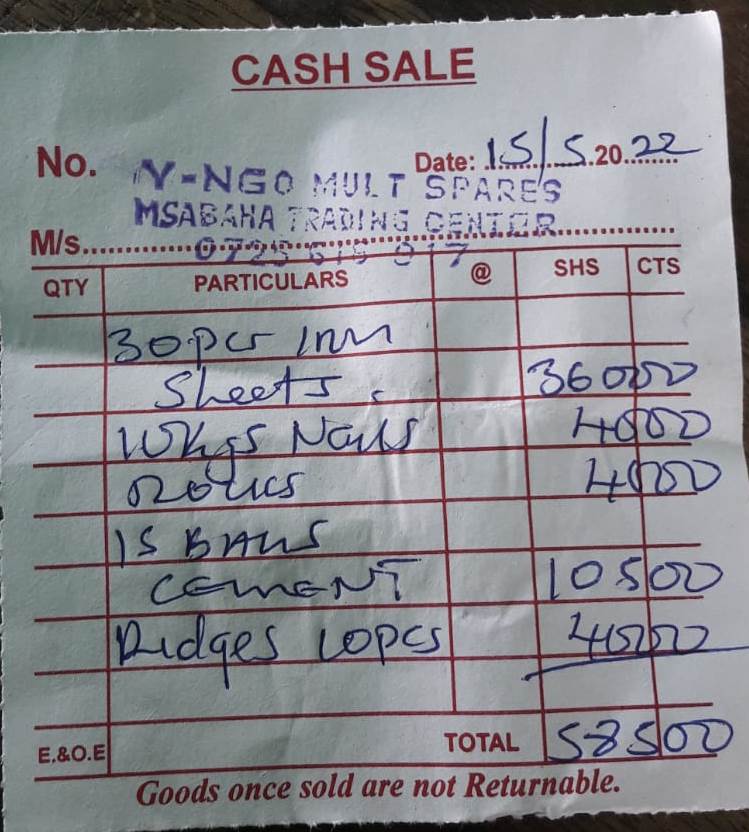 CASH SALE
No. Date: 15/5.20.22
Y-NGO MULT SPARES
MSABAHA TRADING CENTER
M/s.
QTY PARTICULARS @ SHS CTS
30 pcs
Sheets. 36000
10kgs Nails 4000
4000
15 BAGS
CEMENT 10500
Ridges 10pcs 4000
E.&O.E TOTAL 58500
Goods once sold are not Returnable.